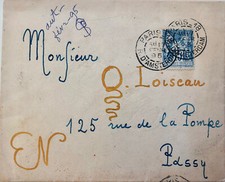 Monsieur
O. Loiseau
125 rue de la Pompe
EN
Passy
PARIS
D'AMSTERDAM